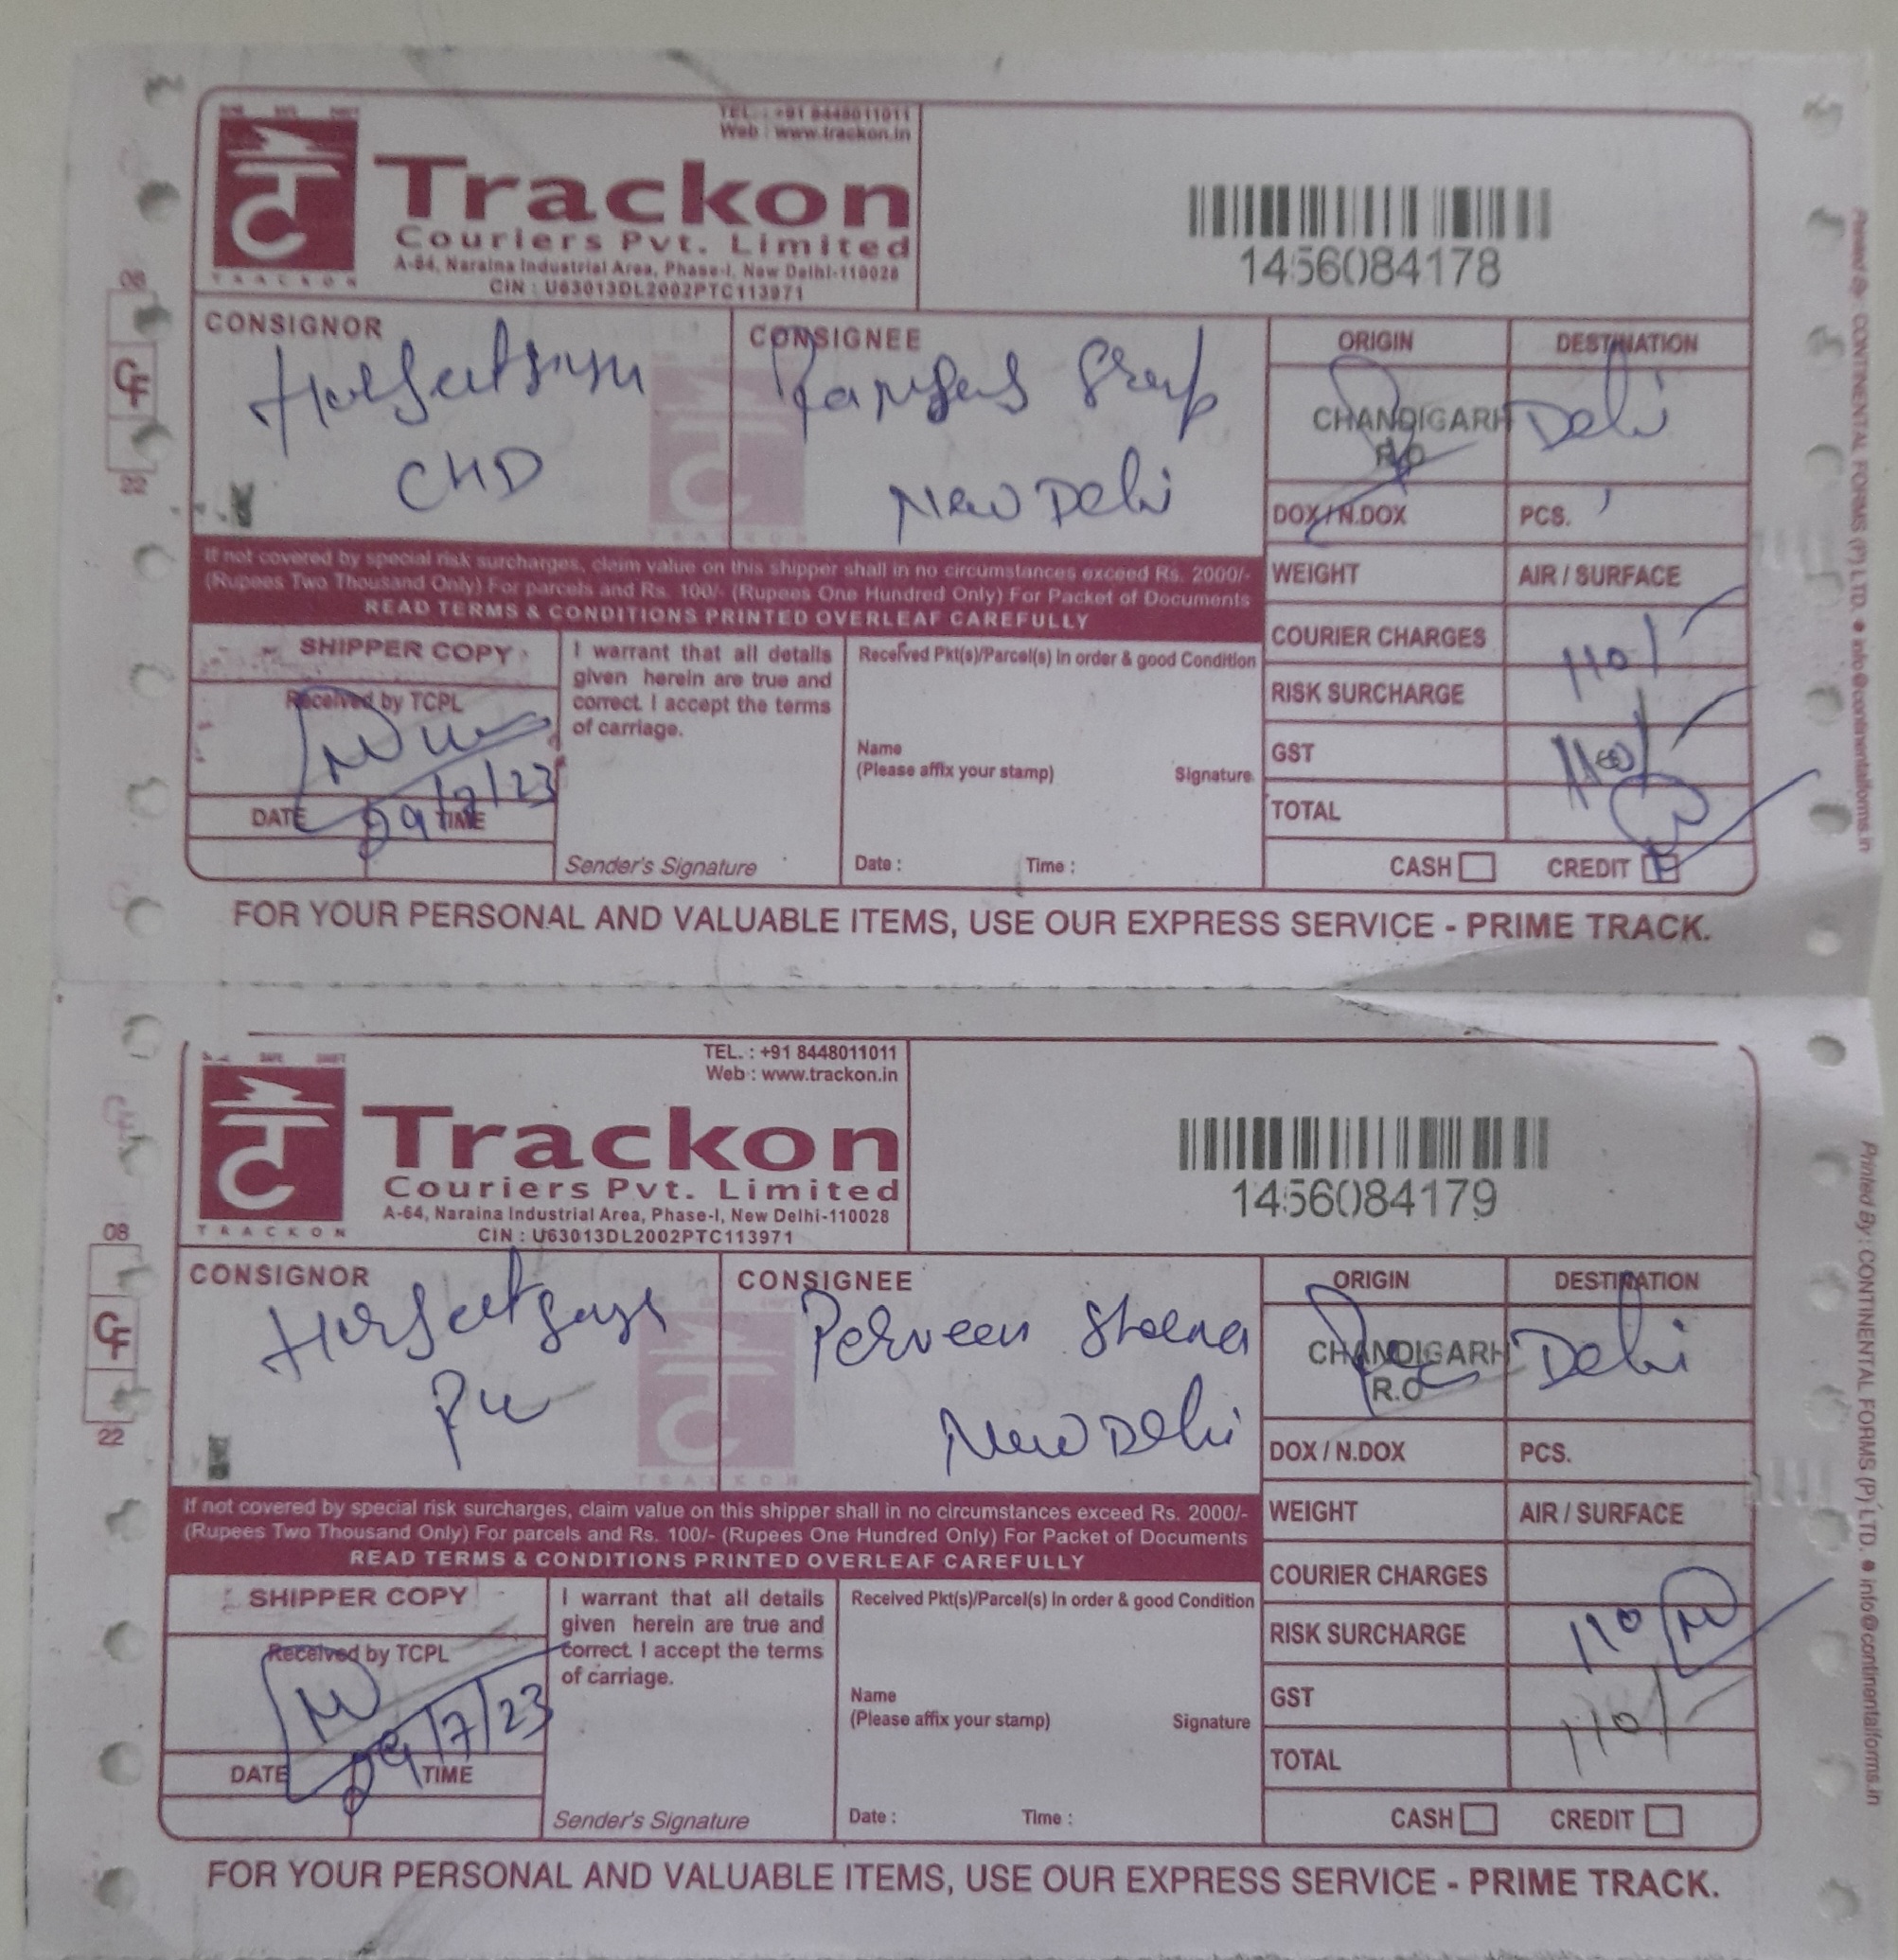 TEL. : +91 8448011011
Web : www.trackon.in
Trackon
Couriers Pvt. Limited
A-64, Naraina Industrial Area, Phase-I, New Delhi-110028
CIN : U63013DL2002PTC113971
TRACKON
1456084178
CONSIGNOR
CHD
CONSIGNEE
New Delhi
ORIGIN
CHANDIGARH
R.O
DESTINATION
Delhi
DOX / N.DOX
PCS.
WEIGHT
AIR / SURFACE
COURIER CHARGES
110/
RISK SURCHARGE
GST
110/
TOTAL
CASH
CREDIT
If not covered by special risk surcharges, claim value on this shipper shall in no circumstances exceed Rs. 2000/-
(Rupees Two Thousand Only) For parcels and Rs. 100/- (Rupees One Hundred Only) For Packet of Documents
READ TERMS & CONDITIONS PRINTED OVERLEAF CAREFULLY
SHIPPER COPY
Received by TCPL
09/7/23
DATE
TIME
I warrant that all details
given herein are true and
correct. I accept the terms
of carriage.
Sender's Signature
Received Pkt(s)/Parcel(s) In order & good Condition
Name
(Please affix your stamp)
Signature
Date :
Time :
FOR YOUR PERSONAL AND VALUABLE ITEMS, USE OUR EXPRESS SERVICE - PRIME TRACK.
08
CF
22
Printed By : CONTINENTAL FORMS (P) LTD. ● info@continentalforms.in
SAFE
TEL. : +91 8448011011
Web : www.trackon.in
Trackon
Couriers Pvt. Limited
A-64, Naraina Industrial Area, Phase-I, New Delhi-110028
CIN : U63013DL2002PTC113971
TRACKON
1456084179
CONSIGNOR
CONSIGNEE
Perveen
New Delhi
ORIGIN
CHANDIGARH
R.O
DESTINATION
Delhi
DOX / N.DOX
PCS.
WEIGHT
AIR / SURFACE
COURIER CHARGES
RISK SURCHARGE
110
GST
110/
TOTAL
CASH
CREDIT
If not covered by special risk surcharges, claim value on this shipper shall in no circumstances exceed Rs. 2000/-
(Rupees Two Thousand Only) For parcels and Rs. 100/- (Rupees One Hundred Only) For Packet of Documents
READ TERMS & CONDITIONS PRINTED OVERLEAF CAREFULLY
SHIPPER COPY
Received by TCPL
09/7/23
DATE
TIME
I warrant that all details
given herein are true and
correct. I accept the terms
of carriage.
Sender's Signature
Received Pkt(s)/Parcel(s) In order & good Condition
Name
(Please affix your stamp)
Signature
Date :
Time :
FOR YOUR PERSONAL AND VALUABLE ITEMS, USE OUR EXPRESS SERVICE - PRIME TRACK.
08
CF
22
Printed By : CONTINENTAL FORMS (P) LTD. ● info@continentalforms.in